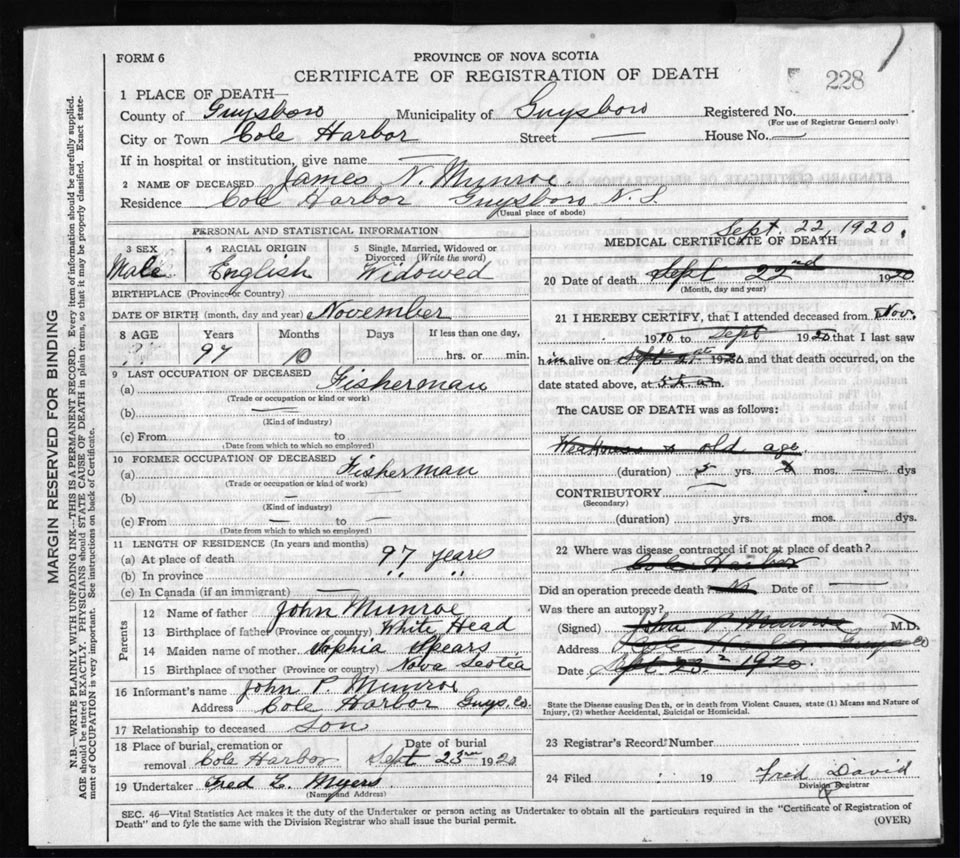 FORM 6
PROVINCE OF NOVA SCOTIA
CERTIFICATE OF REGISTRATION OF DEATH
228
1 PLACE OF DEATH—
County of Guysboro Municipality of Guysboro Registered No.
(For use of Registrar General only)
City or Town Cole Harbor Street — House No. —
If in hospital or institution, give name —
2 NAME OF DECEASED James N. Munroe.
Residence Cole Harbor Guysboro N. S.
(Usual place of abode)
PERSONAL AND STATISTICAL INFORMATION
3 SEX 4 RACIAL ORIGIN 5 Single, Married, Widowed or Divorced (Write the word)
Male English Widowed
BIRTHPLACE (Province or Country)
DATE OF BIRTH (month, day and year) November
8 AGE Years Months Days If less than one day,
97 10 hrs. or min.
9 LAST OCCUPATION OF DECEASED
(a) Fisherman
(Trade or occupation or kind or work)
(b) —
(Kind of industry)
(c) From to
(Date from which to which so employed)
10 FORMER OCCUPATION OF DECEASED
(a) Fisherman
(Trade or occupation or kind of work)
(b) —
(Kind of industry)
(c) From — to —
(Date from which to which so employed)
11 LENGTH OF RESIDENCE (In years and months)
(a) At place of death 97 years
(b) In province " "
(c) In Canada (if an immigrant) —
Parents
12 Name of father John Munroe
13 Birthplace of father (Province or country) White Head
14 Maiden name of mother Sophia Spears
15 Birthplace of mother (Province or country) Nova Scotia
16 Informant's name John P. Munroe
Address Cole Harbor Guys. Co.
17 Relationship to deceased Son
18 Place of burial, cremation or removal Cole Harbor Date of burial Sept 23rd 1920
19 Undertaker Fred L. Myers
(Name and Address)
Sept. 22, 1920.
MEDICAL CERTIFICATE OF DEATH
20 Date of death Sept 22nd 1920
(Month, day and year)
21 I HEREBY CERTIFY, that I attended deceased from Nov.
1910 to Sept 1920 that I last saw
him alive on Sept 21st 1920 and that death occurred, on the
date stated above, at 5 h. am.
The CAUSE OF DEATH was as follows:
Weakness & old age
(duration) 5 yrs. mos. — dys
CONTRIBUTORY —
(Secondary)
(duration) yrs. mos. dys.
22 Where was disease contracted if not at place of death?
Cole Harbor
Did an operation precede death? No Date of —
Was there an autopsy?
(Signed) John P. Munroe M.D.
Address Cole Harbor Guys Co
Date Sept. 23. 1920.
State the Disease causing Death, or in death from Violent Causes, state (1) Means and Nature of
Injury, (2) whether Accidental, Suicidal or Homicidal.
23 Registrar's Record Number
24 Filed 19 Fred David
Division Registrar
SEC. 46—Vital Statistics Act makes it the duty of the Undertaker or person acting as Undertaker to obtain all the particulars required in the "Certificate of Registration of
Death" and to fyle the same with the Division Registrar who shall issue the burial permit.
(OVER)
MARGIN RESERVED FOR BINDING
N.B.—WRITE PLAINLY WITH UNFADING INK—THIS IS A PERMANENT RECORD. Every item of information should be carefully supplied.
AGE should be stated EXACTLY. PHYSICIANS should STATE CAUSE OF DEATH in plain terms, so that it may be properly classified. Exact state-
ment of OCCUPATION is very important. See instructions on back of Certificate.